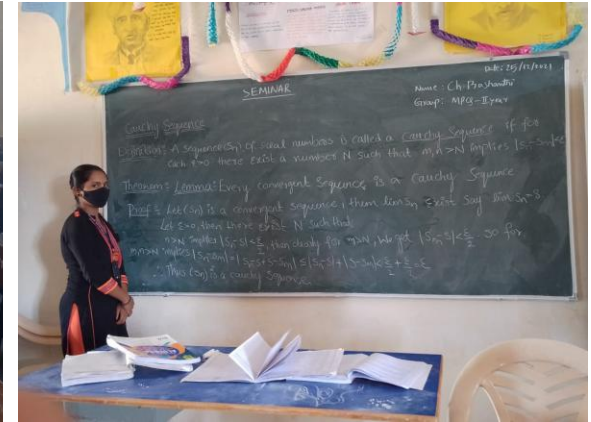 SEMINAR
Name : Ch. Prashanthi
Group: MPCs - II year
Cauchy Sequence
Definition: A sequence (Sn) of real numbers is called a Cauchy Sequence if for
each ε>0 there exist a number N such that m,n>N implies |Sn-Sm|<ε
Theorem: Lemma: Every convergent Sequence is a Cauchy Sequence
Proof: Let (Sn) is a convergent sequence, then lim Sn exist Say lim Sn=S
Let ε>0, then there exist N such that
n>N implies |Sn-S|<ε/2, then clearly for m>N, we get |Sm-S|<ε/2 so for
m,n>N implies |Sn-Sm|=|Sn-S+S-Sm| ≤ |Sn-S|+|S-Sm|< ε/2 + ε/2 = ε
∴ Thus (Sn) is a cauchy Sequence